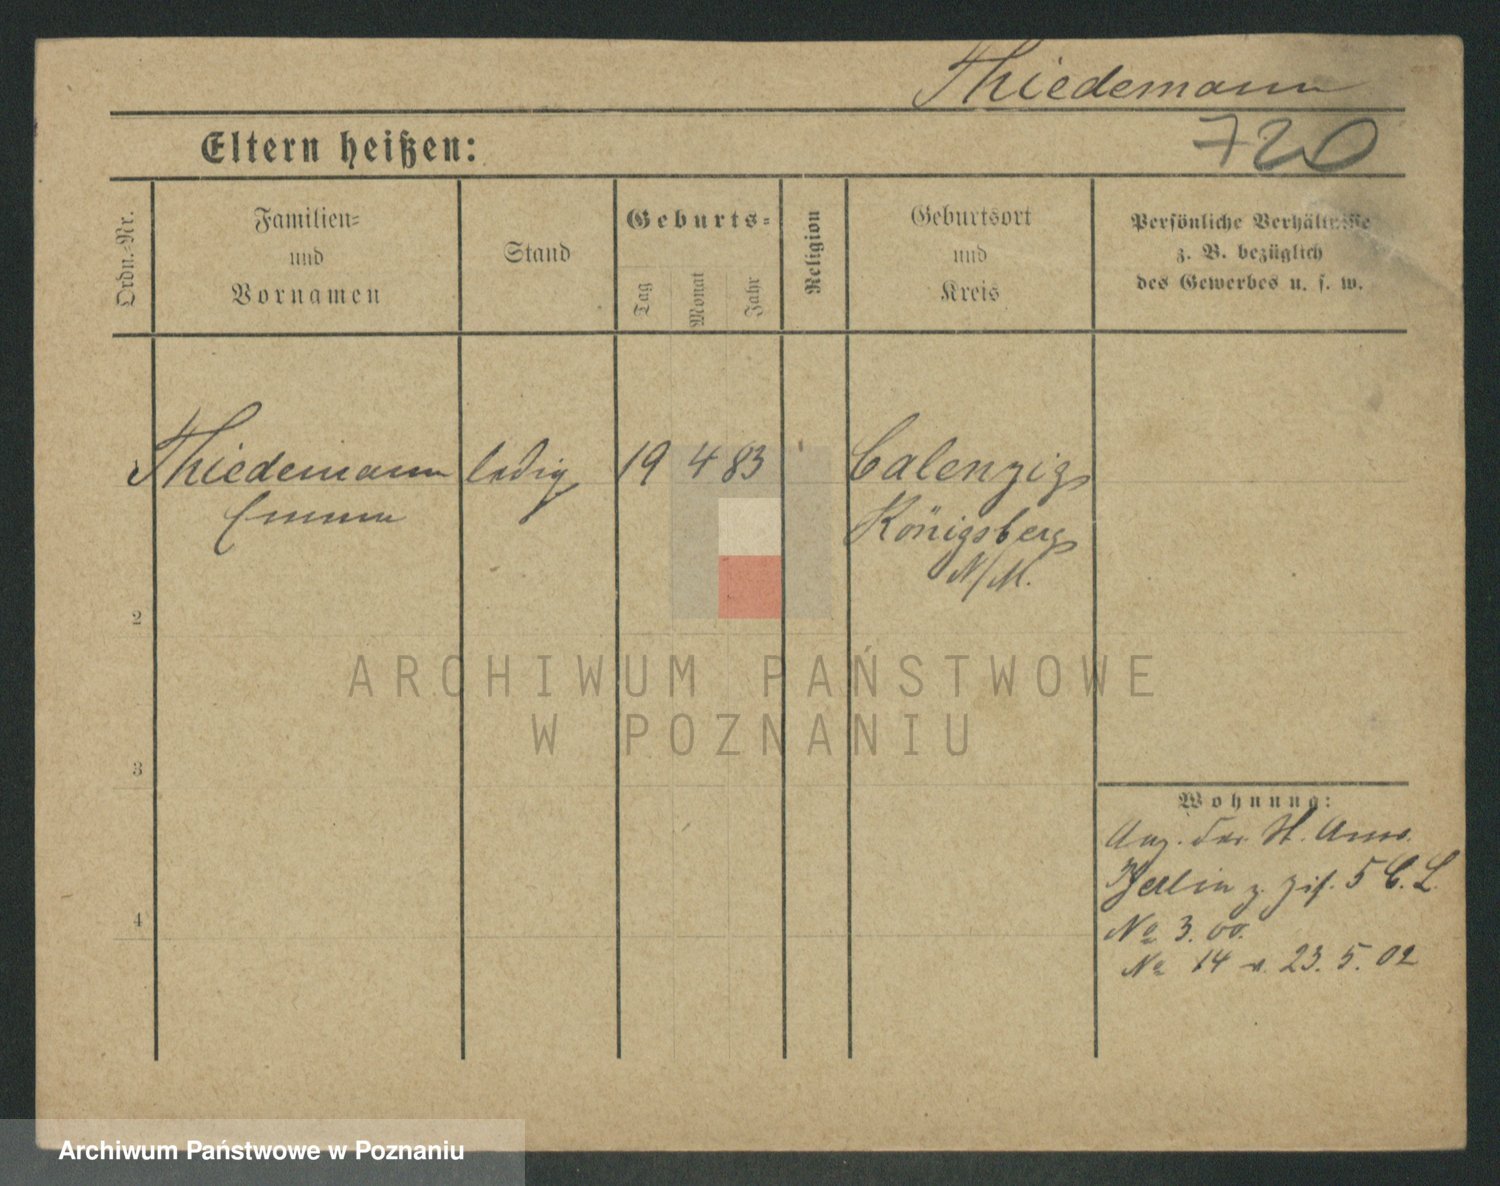 Thiedemann
Eltern heißen:
720
Ordn.-Nr.
Familien-
und
Vornamen
Stand
Geburts-
Tag
Monat
Jahr
Religion
Geburtsort
und
Kreis
Persönliche Verhältnisse
z. B. bezüglich
des Gewerbes u. s. w.
1
Thiedemann
Emma
ledig
19
4
83
Calenzig
Königsberg
N/M.
2
ARCHIWUM PAŃSTWOWE
W POZNANIU
3
Wohnung:
der St. Anw.
Berlin z. 5 C. L.
No 3. 00.
No 14 v. 23. 5. 02
4
Archiwum Państwowe w Poznaniu